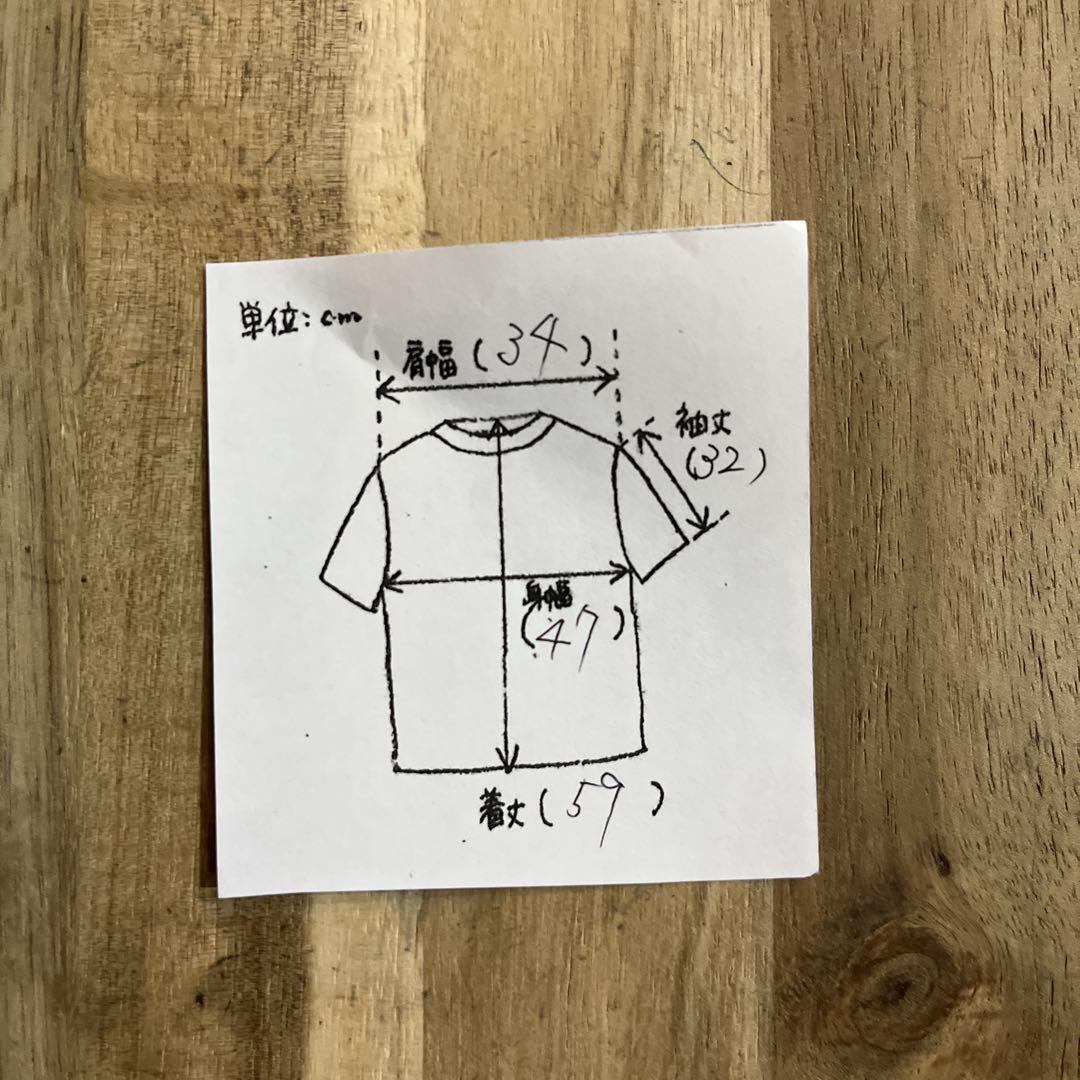 単位：cm
肩幅(34)
袖丈
(32)
身幅
(47)
着丈(59)